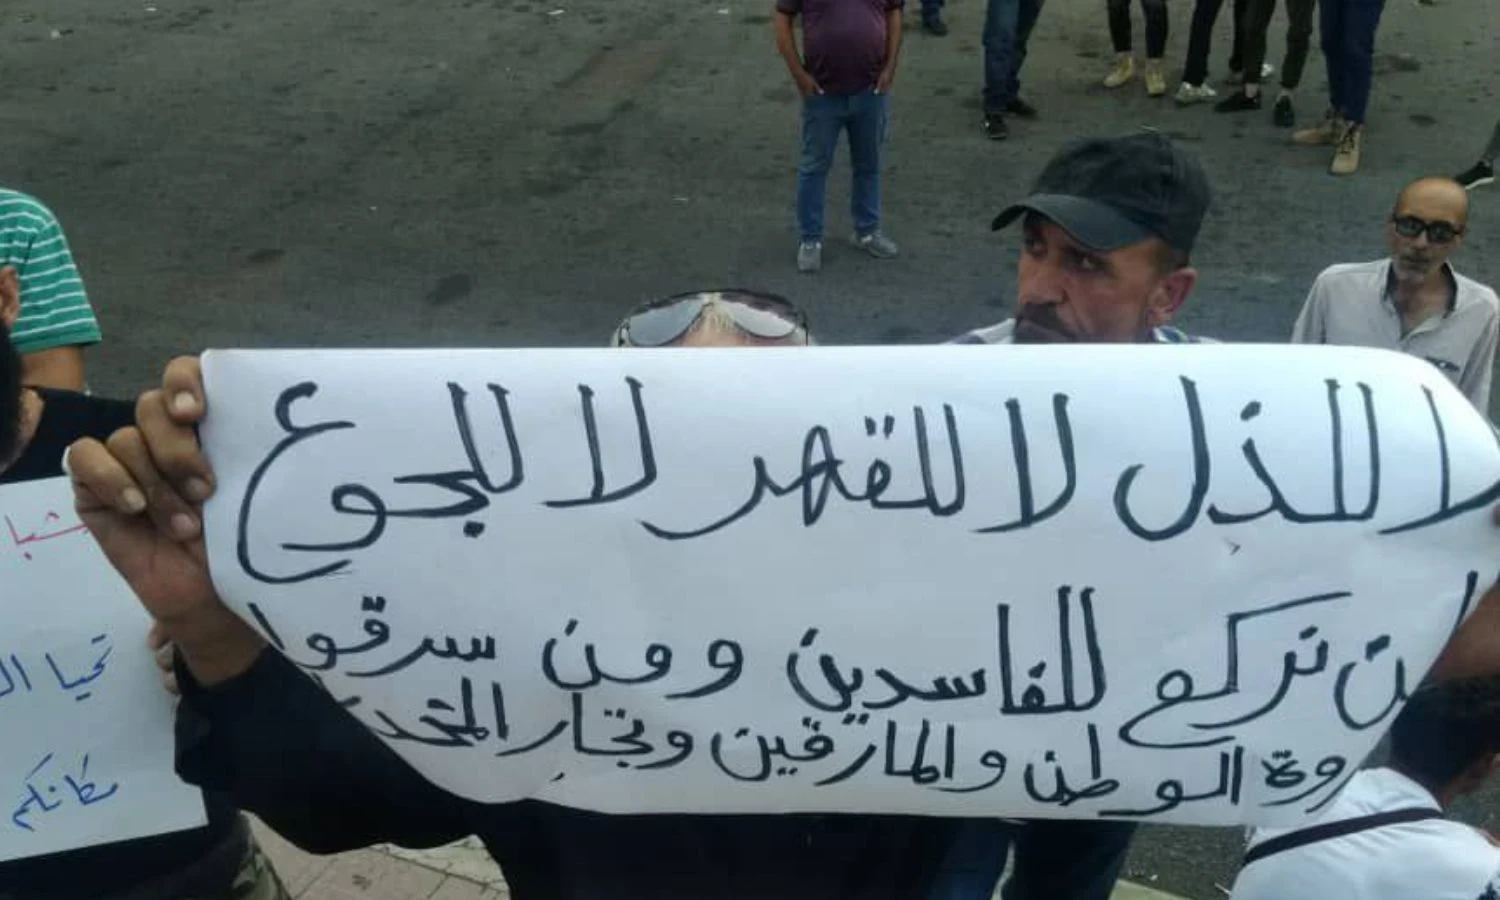 لا للذل لا للقهر لا للجوع
لن نركع للفاسدين و من سرقوا
روة الوطن والمازقين وتجار المخد
شبا
تحيا ال
مكانكم